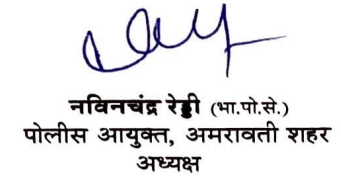 नविनचंद्र रेड्डी (भा.पो.से.)
पोलीस आयुक्त, अमरावती शहर
अध्यक्ष